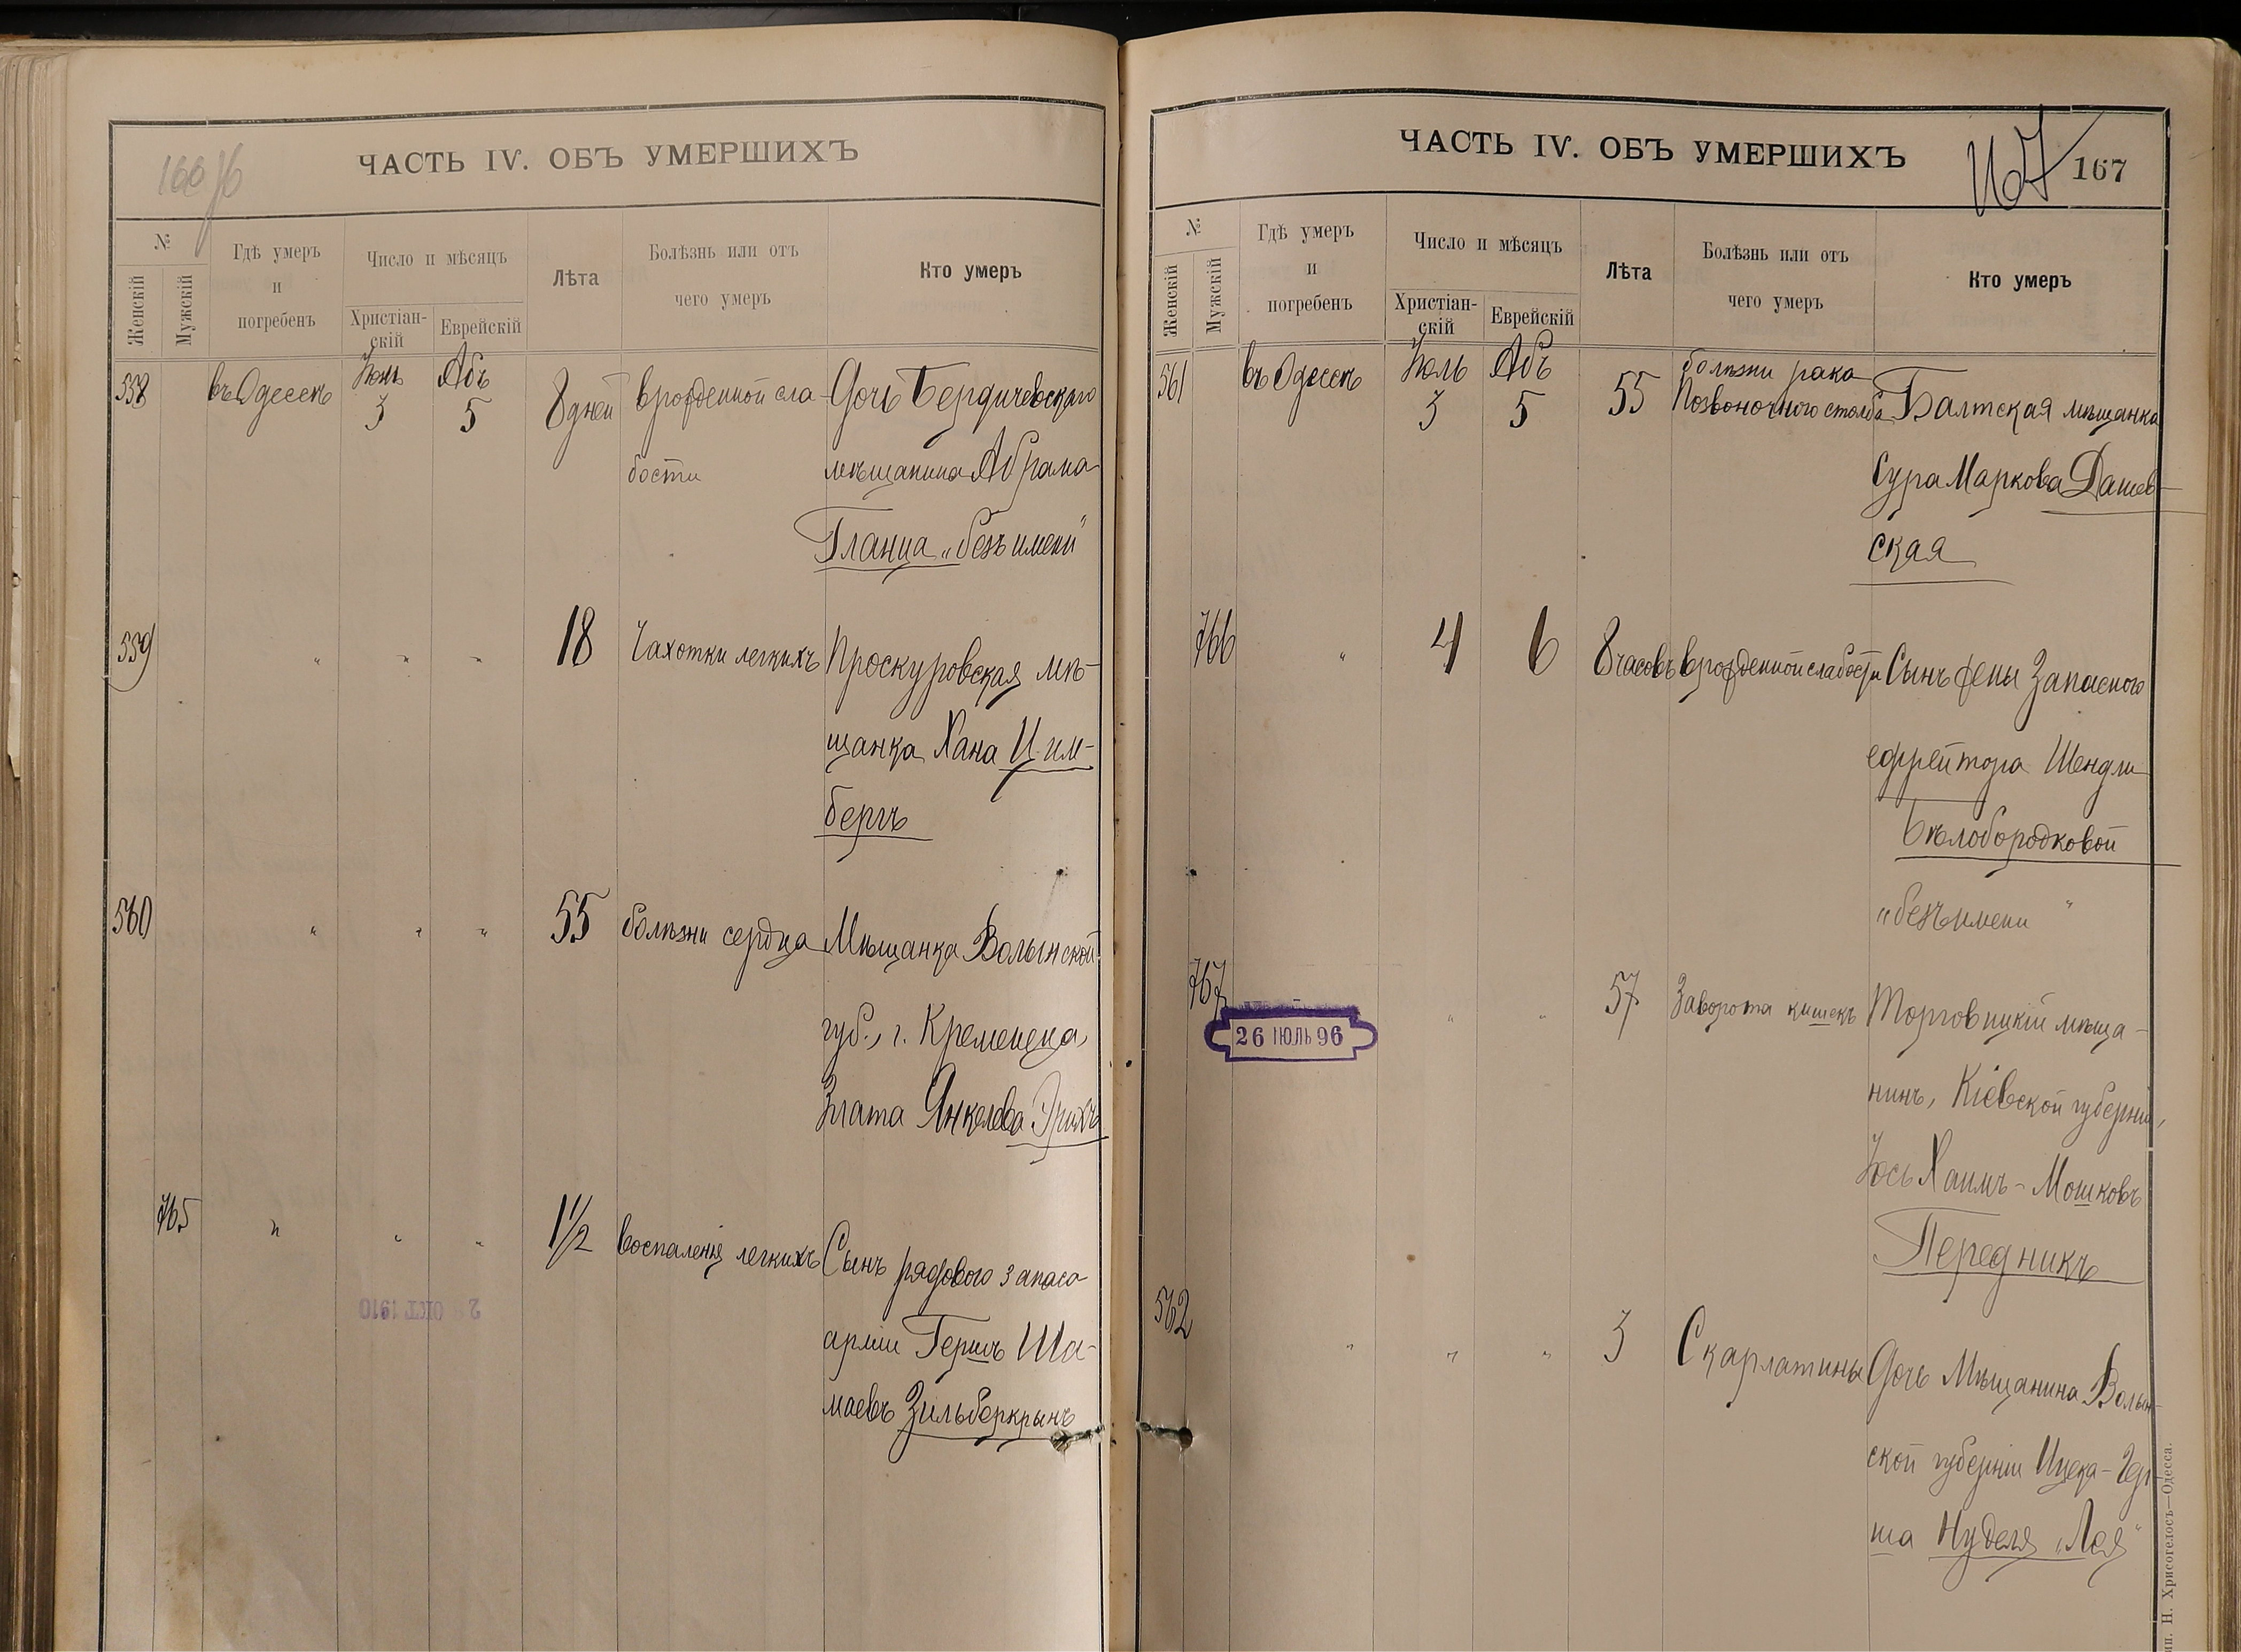 166 об
ЧАСТЬ IV. ОБЪ УМЕРШИХЪ
№
Женскій
Мужскій
Гдѣ умеръ
и
погребенъ
Число и мѣсяцъ
Христіан-
скій
Еврейскій
Лѣта
Болѣзнь или отъ
чего умеръ
Кто умеръ
558 въ Одессѣ Іюль 3 Абъ 5 8 дней врожденной сла- Дочь Бердичевскаго
бости мѣщанина Абрама
Гланца „безъ имени"
559 " " " 18 Чахотки легкихъ Проскуровская мѣ-
щанка Хана Цим-
бергъ
560 " " " 55 болѣзни сердца Мѣщанка Волынской
губ., г. Кременеца,
Злата Янкелева
765 " " " 1½ воспаленія легкихъ Сынъ рядового запаса
арміи Гершъ Ша-
маевъ Зильберкрынъ
ОКТ 1910
ЧАСТЬ IV. ОБЪ УМЕРШИХЪ
167 167
№
Женскій
Мужскій
Гдѣ умеръ
и
погребенъ
Число и мѣсяцъ
Христіан-
скій
Еврейскій
Лѣта
Болѣзнь или отъ
чего умеръ
Кто умеръ
561 въ Одессѣ Іюль 3 Абъ 5 55 болѣзни рака
Позвоночного столба Балтская мѣщанка
Сура Маркова Дашев-
ская
766 " 4 6 8 часовъ врожденной слабости Сынъ жены Запасного
ефрейтора Шендли
Бѣлобородковой
„безъ имени"
767 " " 57 Заворота кишекъ Торговицкій мѣща-
нинъ, Кіевской губерніи,
Іось Хаимъ-Мошковъ
Передникъ
26 ІЮЛЬ 96
562 " " " 3 Скарлатины Дочь Мѣщанина Волын-
ской губерніи Ицека-Гер-
ша Нуделя „Лея"
Н. Хрисогелосъ—Одесса.